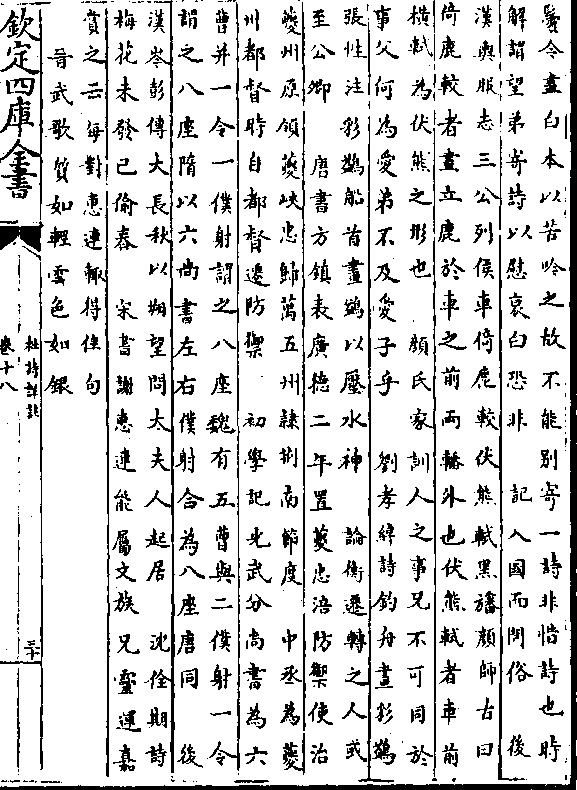 鬢令盡白本以苦吟之故不能别寄一詩非惜詩也時
解謂望弟寄詩以慰衰白恐非　記入國而問俗　後
漢輿服志三公列侯車倚鹿較伏熊軾黑轓顔師古曰
倚鹿較者畫立鹿於車之前兩轓外也伏熊軾者車前
横軾為伏熊之形也　顔氏家訓人之事兄不可同於
事父何為愛弟不及愛子乎　劉孝綽詩釣舟畫彩鷁
張性注彩鷁船首畫鷁以壓水神　論衡遷轉之人或
至公卿　唐書方鎮表廣德二年置夔忠涪防禦使治
夔州原領夔峽忠歸萬五州隸荆南節度　中丞為夔
州都督時自都督遷防禦　初學記光武分尚書為六
曹并一令一僕射謂之八座魏有五曹與二僕射一令
謂之八座隋以六尚書左右僕射合為八座唐同　後
漢岑彭傳大長秋以朔望問太夫人起居　沈佺期詩
梅花未發已偷春　宋書謝惠連能屬文族兄靈運嘉
賞之云每對惠連輒得佳句
晉武歌質如輕雲色如銀
欽定四庫全書
杜詩詳註
卷十八
三十